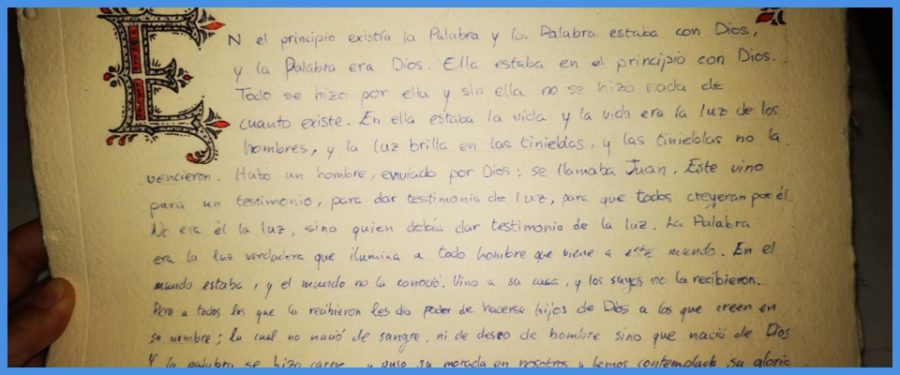 EN el principio existía la Palabra y la Palabra estaba con Dios,
y la Palabra era Dios. Ella estaba en el principio con Dios.
Todo se hizo por ella y sin ella no se hizo nada de
cuanto existe. En ella estaba la vida y la vida era la luz de los
hombres, y la luz brilla en las tinieblas, y las tinieblas no la
vencieron. Hubo un hombre, enviado por Dios: se llamaba Juan. Este vino
para un testimonio, para dar testimonio de luz, para que todos creyeran por él.
No era él la luz, sino quien debía dar testimonio de la luz. La Palabra
era la luz verdadera que ilumina a todo hombre que viene a este mundo. En el
mundo estaba, y el mundo no la conoció. Vino a su casa, y los suyos no la recibieron.
Pero a todos los que la recibieron les dio poder de hacerse hijos de Dios a los que creen en
su nombre; la cual no nació de sangre, ni de deseo de hombre sino que nació de Dios
Y la palabra se hizo carne, y puso su morada en nosotros y hemos contemplado su gloria